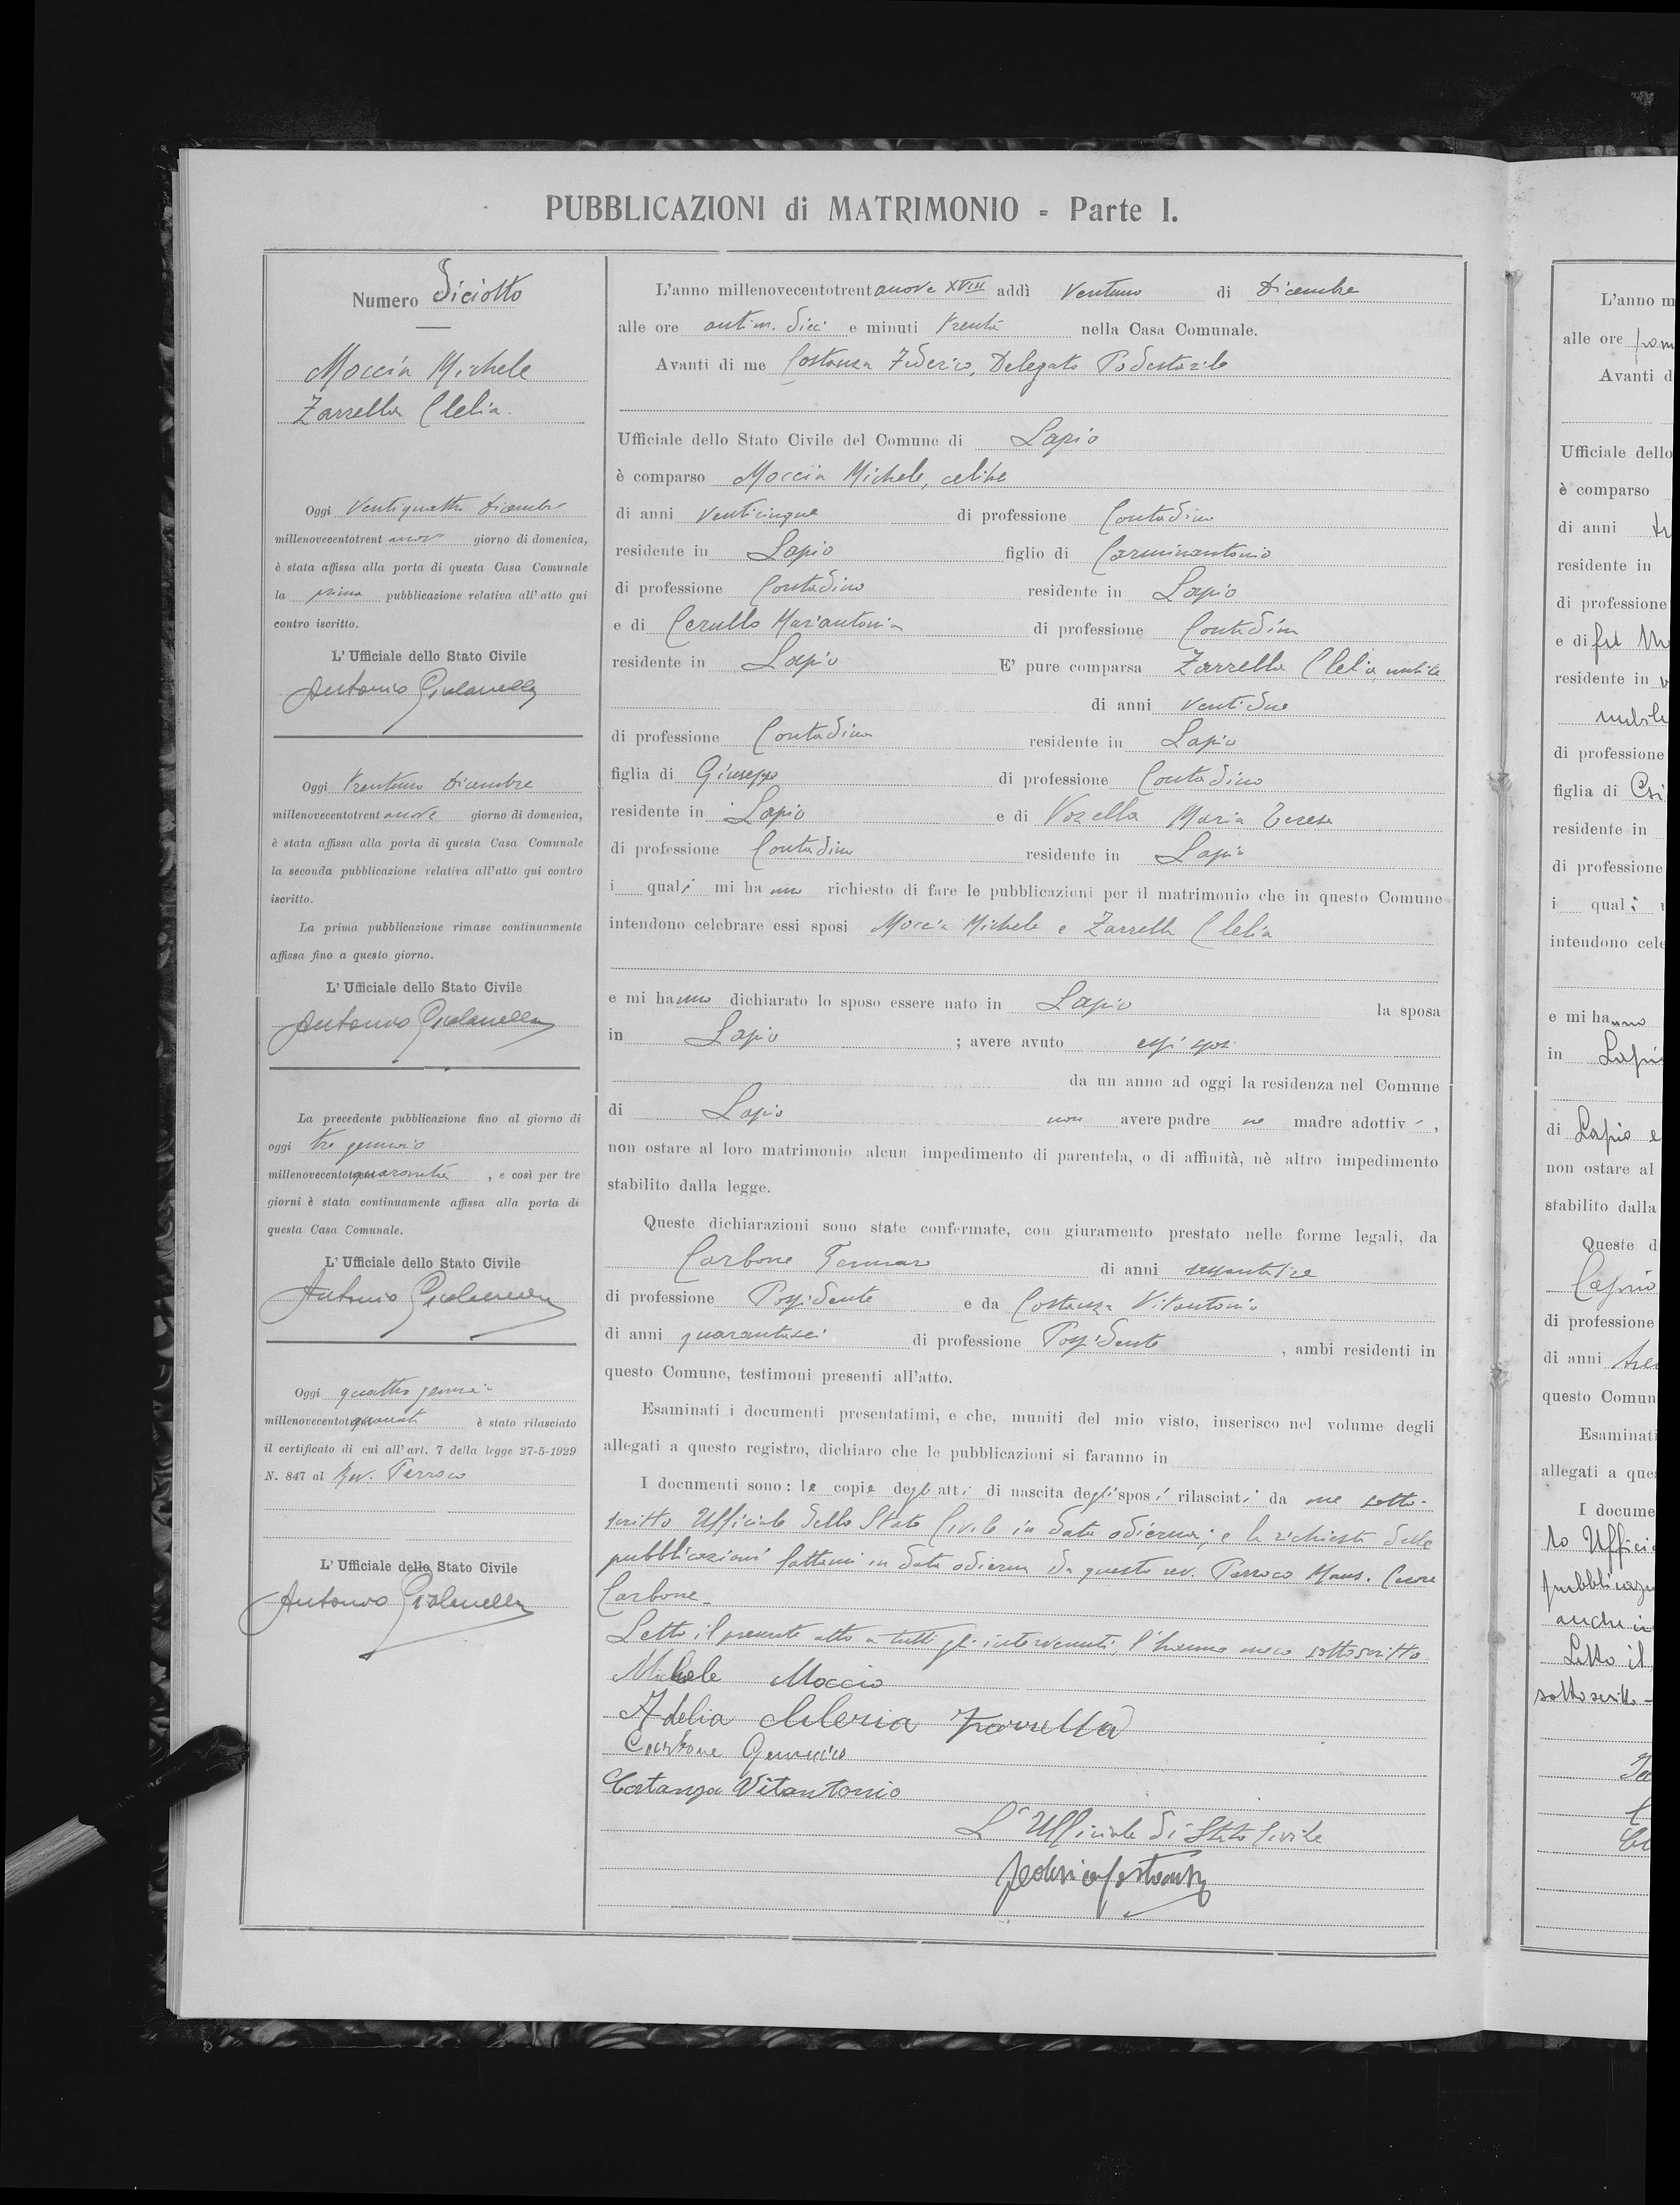 PUBBLICAZIONI di MATRIMONIO - Parte I.
Numero diciotto
Moccia Michele
Zarrella Clelia.
Oggi Ventiquattro dicembre
millenovecentotrentanove giorno di domenica,
è stata affissa alla porta di questa Casa Comunale
la prima pubblicazione relativa all'atto qui
contro iscritto.
L'Ufficiale dello Stato Civile
Antonio
Oggi trentuno dicembre
millenovecentotrentanove giorno di domenica,
è stata affissa alla porta di questa Casa Comunale
la seconda pubblicazione relativa all'atto qui contro
iscritto.
La prima pubblicazione rimase continuamente
affissa fino a questo giorno.
L'Ufficiale dello Stato Civile
Antonio
La precedente pubblicazione fino al giorno di
oggi tre gennaio
millenovecentoquaranta, e così per tre
giorni è stata continuamente affissa alla porta di
questa Casa Comunale.
L'Ufficiale dello Stato Civile
Antonio
Oggi quattro gennaio
millenovecentoquaranta è stato rilasciato
il certificato di cui all'art. 7 della legge 27-5-1929
N. 847 al Rev. Parroco
L'Ufficiale dello Stato Civile
Antonio
L'anno millenovecentotrentanove XVIII addì Ventuno di Dicembre
alle ore antim. dieci e minuti trenta nella Casa Comunale.
Avanti di me Costanza Federico, Delegato Podestarile
Ufficiale dello Stato Civile del Comune di Lapio
è comparso Moccia Michele, celibe
di anni venticinque di professione Contadino
residente in Lapio figlio di Carminantonio
di professione Contadino residente in Lapio
e di Cerullo Mariantonia di professione Contadina
residente in Lapio E' pure comparsa Zarrella Clelia, nubile
di anni ventidue
di professione Contadina residente in Lapio
figlia di Giuseppe di professione Contadino
residente in Lapio e di Vozella Maria Teresa
di professione Contadina residente in Lapio
i quali mi hanno richiesto di fare le pubblicazioni per il matrimonio che in questo Comune
intendono celebrare essi sposi Moccia Michele e Zarrella Clelia
e mi hanno dichiarato lo sposo essere nato in Lapio la sposa
in Lapio ; avere avuto essi sposi
da un anno ad oggi la residenza nel Comune
di Lapio non avere padre ne madre adottiv - ,
non ostare al loro matrimonio alcun impedimento di parentela, o di affinità, nè altro impedimento
stabilito dalla legge.
Queste dichiarazioni sono state confermate, con giuramento prestato nelle forme legali, da
Carbone Gennaro di anni sessantatre
di professione Possidente e da Costanza Vitantonio
di anni quarantasei di professione Possidente , ambi residenti in
questo Comune, testimoni presenti all'atto.
Esaminati i documenti presentatimi, e che, muniti del mio visto, inserisco nel volume degli
allegati a questo registro, dichiaro che le pubblicazioni si faranno in
I documenti sono: le copie degli atti di nascita degli sposi rilasciati da me sotto-
scritto Ufficiale dello Stato Civile in data odierna; e la richiesta delle
pubblicazioni fattami in data odierna da questo rev. Parroco Mons.
Carbone.
Letto il presente atto a tutti gli intervenuti, l'hanno meco sottoscritto
Michele Moccia
Adelia Clelia Zarrella
Carbone Gennaro
Costanza Vitantonio
L'Ufficiale di Stato Civile
Federico Costanza
L'anno m
alle ore
Avanti d
Ufficiale dello
è comparso
di anni
residente in
di professione
e di fu
residente in
nubile
di professione
figlia di
residente in
di professione
i quali
intendono cele
e mi hanno
in Lapio
di Lapio e
non ostare al
stabilito dalla
Queste d
di professione
di anni
questo Comun
Esaminati
allegati a que
I docume
to Uffici
pubblicaz
anche in
Letto il
sottoscritto